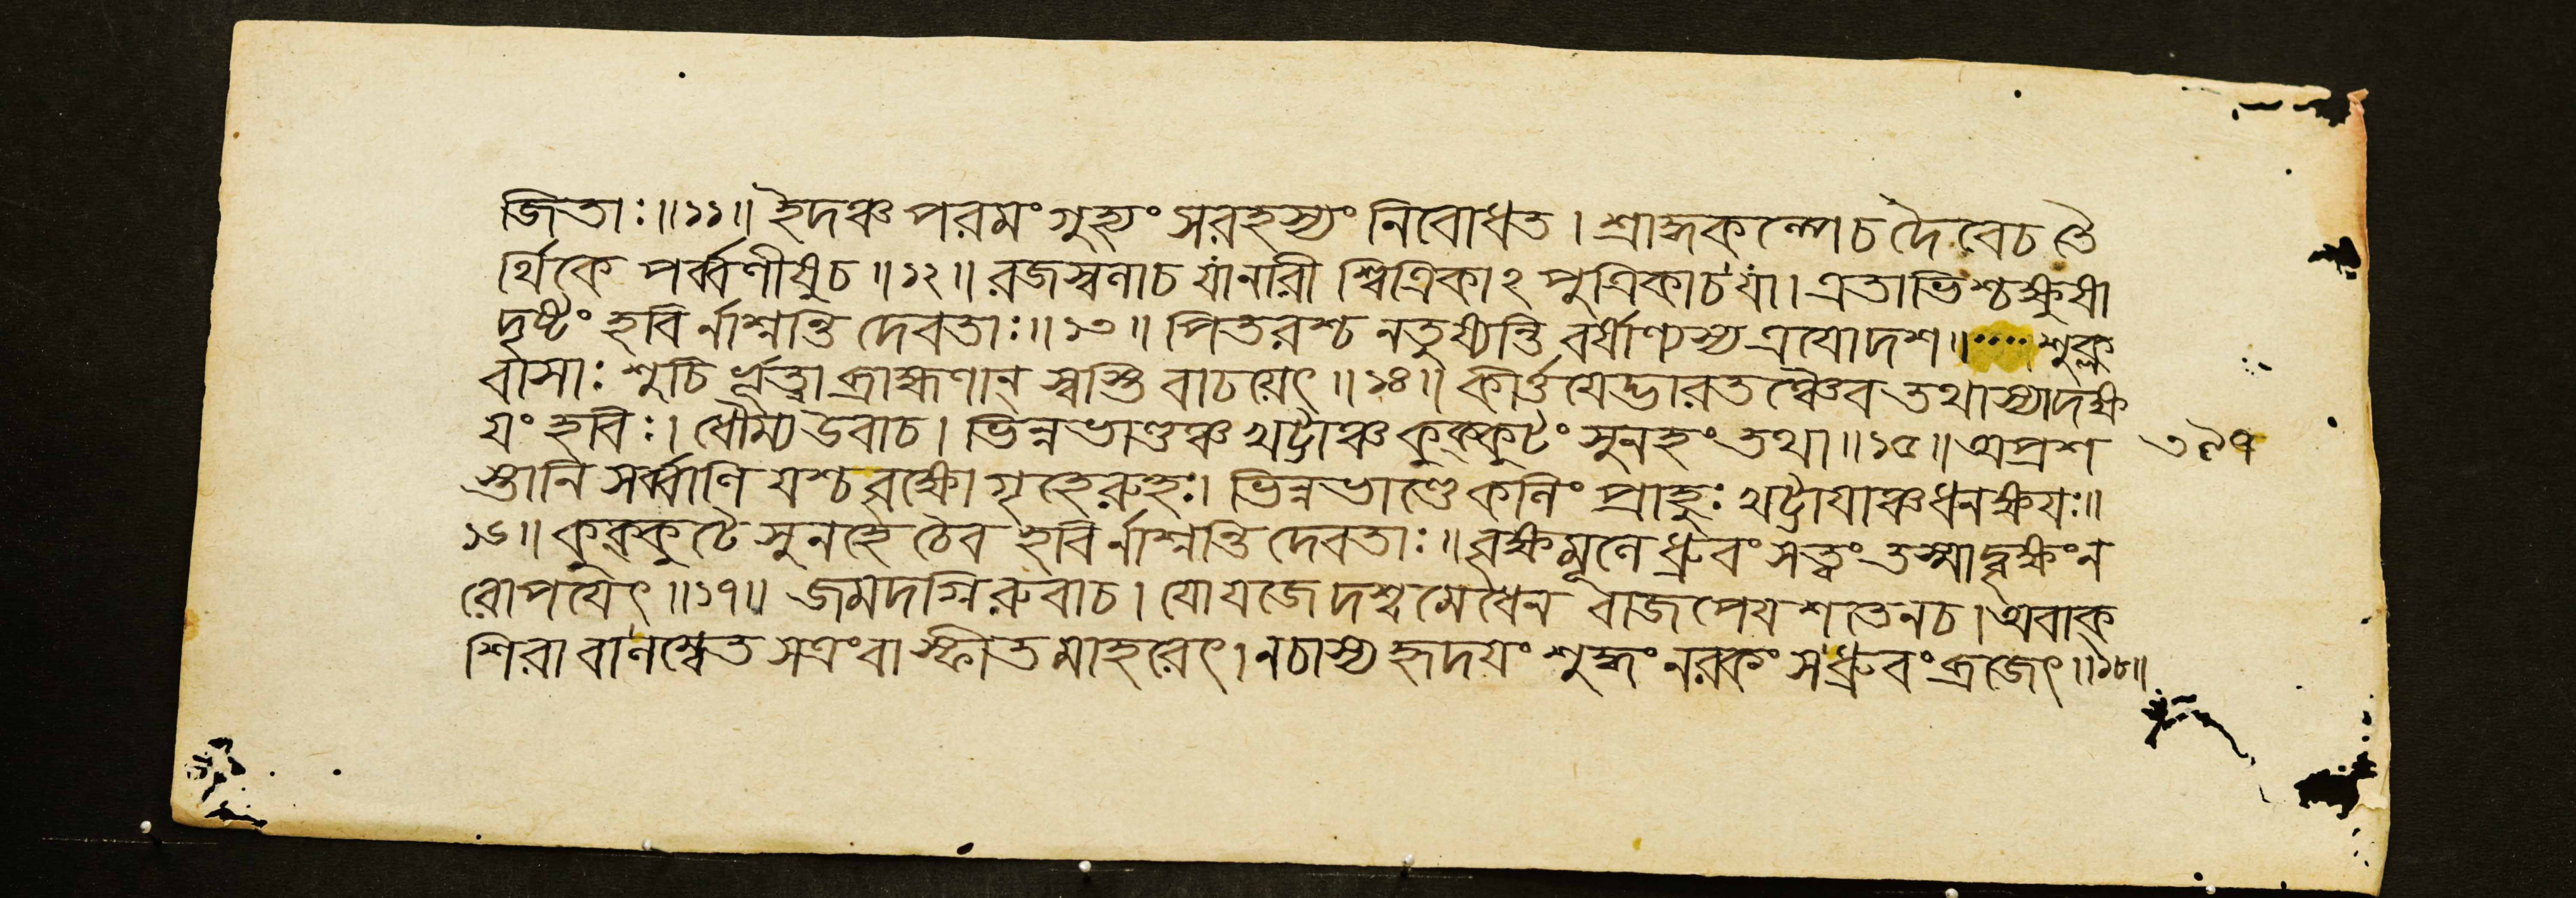 জিতাঃ॥১১॥ ইদঞ্চ পরমং গুহ্যং সরহস্যং নিবোধত। শ্রাদ্ধকল্পেচ দৈবেচ তৈ
র্থিকে পর্ব্বণীষুচ॥১২॥ রজস্বলাচ যানারী শ্বিত্রিকাঽপুত্রিকাচযা। এতাভিশ্চক্ষুষা
দৃষ্টং হবি র্নাশ্নন্তি দেবতাঃ॥১৩॥ পিতরশ্চ নতুষ্যন্তি বর্ষাণ্যস্য ত্রয়োদশ॥.... শুক্ল
বাসাঃ শুচি র্ভূত্বা ব্রাহ্মণান্ স্বস্তি বাচয়েৎ॥১৪॥ কীর্ত্তয়েদ্ভারতঞ্চৈব তথাস্যাদক্ষ
য়ং হবিঃ। ধৌম্য উবাচ। ভিন্নভাণ্ডঞ্চ খট্টাঞ্চ কুক্কুটং সুনহং তথা॥১৫॥ অপ্রশ ৩৯৭
স্তানি সর্ব্বাণি যশ্চ বৃক্ষো গৃহেরুহঃ। ভিন্নভাণ্ডে কলিং প্রাহুঃ খট্টায়াঞ্চ ধনক্ষয়ঃ॥
১৬॥ কুক্কুটে সুনহে চৈব হবি র্নাশ্নন্তি দেবতাঃ॥ বৃক্ষমূলে ধ্রুবং সত্ত্বং তস্মাদ্বৃক্ষং ন
রোপয়েৎ॥১৭॥ জমদগ্নিরুবাচ। যো যজেদশ্বমেধেন বাজপেয়শতেনচ। অবাক্
শিরা বালম্বেত সত্রংবা স্ফীতমাহরেৎ। নচাস্য হৃদয়ং শুদ্ধং নরকং সধ্রুবং ব্রজেৎ॥১৮॥